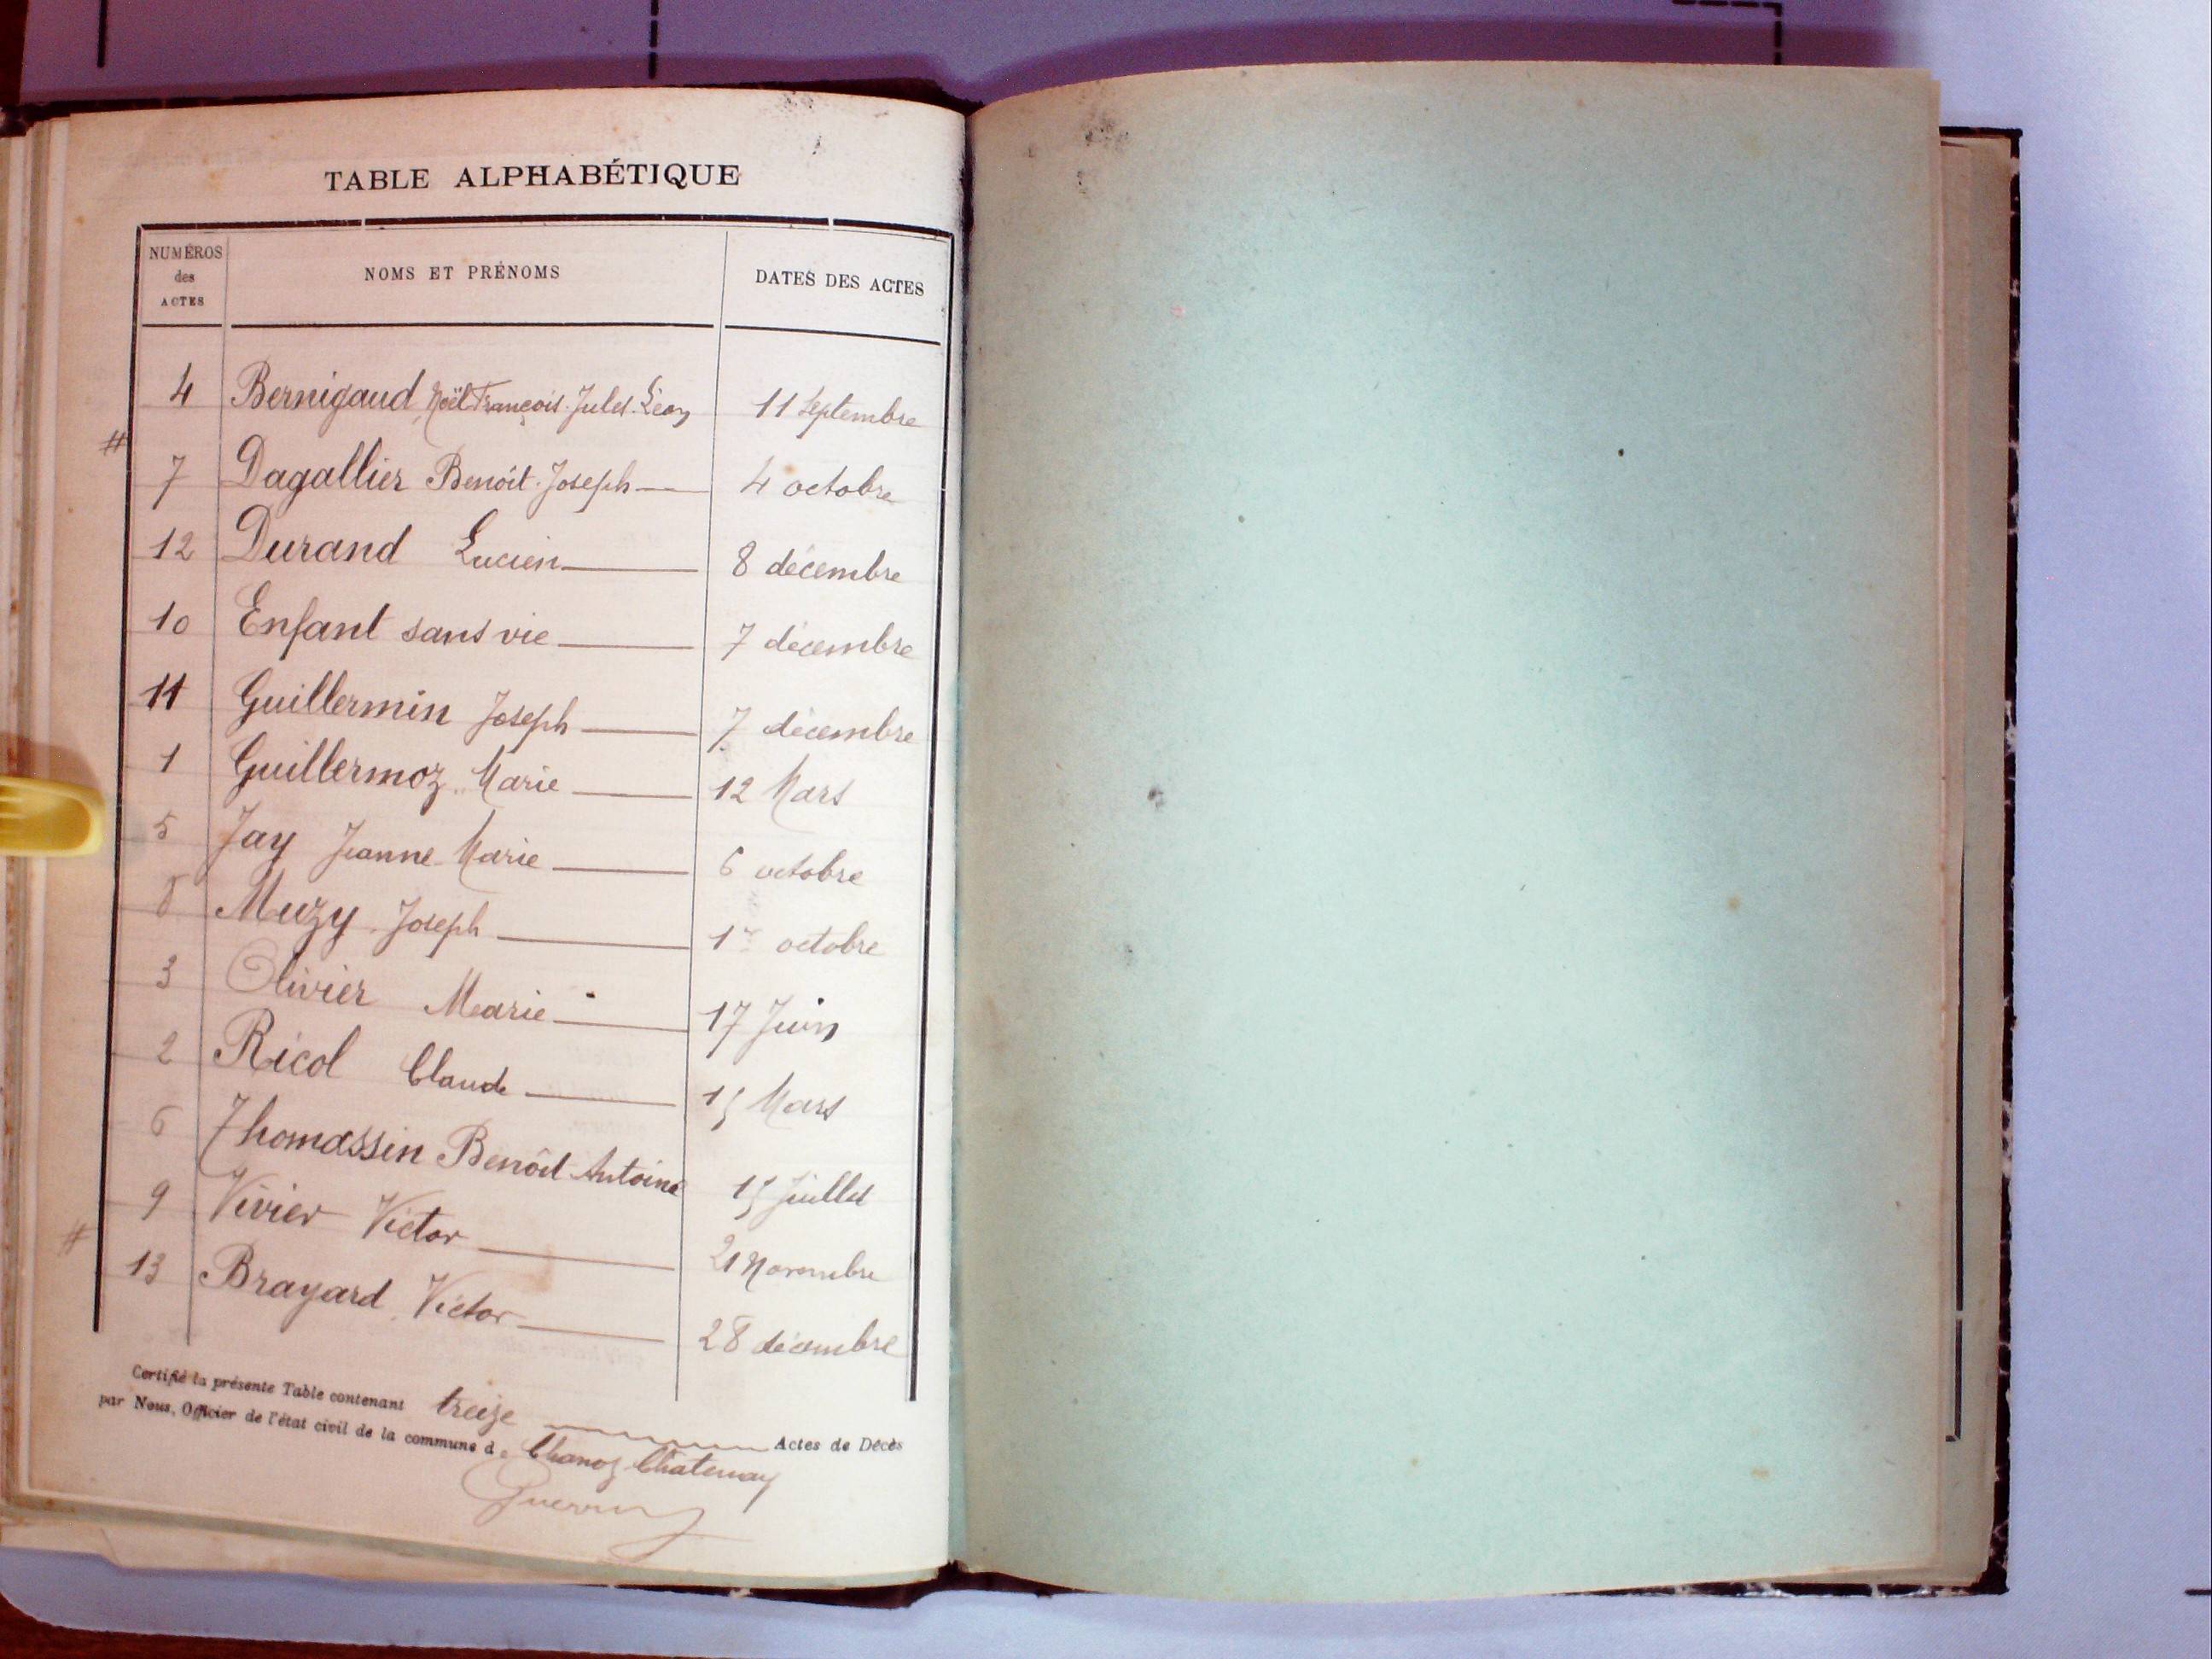 TABLE ALPHABÉTIQUE
NUMÉROS des ACTES NOMS ET PRÉNOMS DATES DES ACTES
4 Bernigaud Noël François Jules Léon 11 Septembre
#
7 Dagallier Benoît Joseph 4 octobre
12 Durand Lucien 8 décembre
10 Enfant sans vie 7 décembre
11 Guillermin Joseph 7 décembre
1 Guillermoz Marie 12 Mars
5 Jay Jeanne Marie 6 octobre
8 Muzy Joseph 1er octobre
3 Olivier Marie 17 Juin
2 Ricol Claude 15 Mars
6 Thomassin Benoît Antoine 15 Juillet
9 Vivier Victor 21 Novembre
#
13 Brayard Victor 28 décembre
Certifié la présente Table contenant treize Actes de Décès
par Nous, Officier de l'état civil de la commune de Chanoz Chatenay